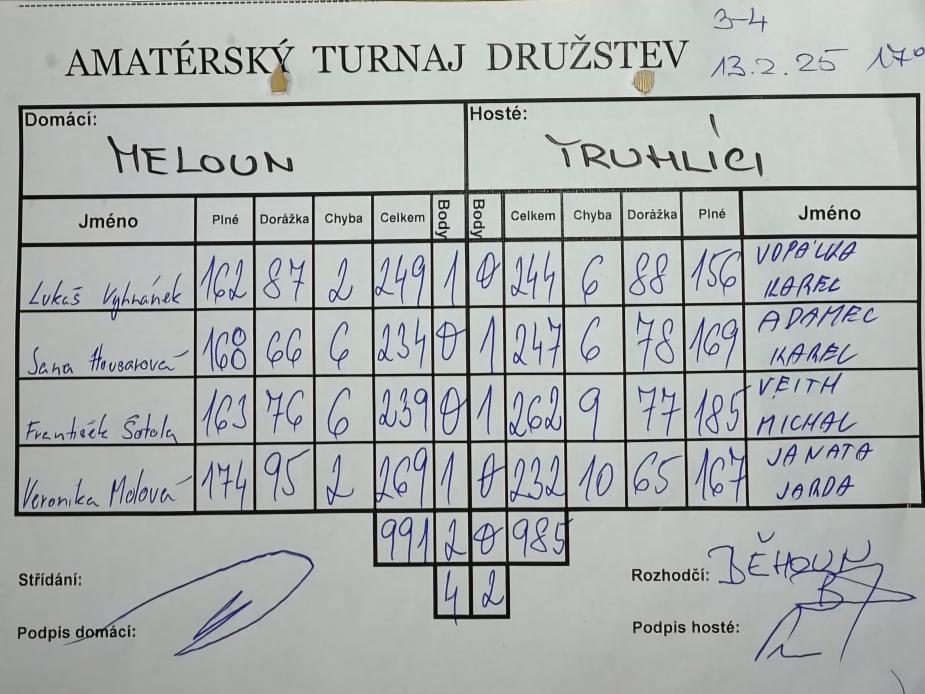 3-4
AMATÉRSKÝ TURNAJ DRUŽSTEV 13.2.25 17⁰
Domácí: Hosté:
MELOUN TRUHLÍCI
Jméno Plné Dorážka Chyba Celkem Body Body Celkem Chyba Dorážka Plné Jméno
Lukáš Vyhnánek 162 87 2 249 1 0 244 6 88 156 VOPÁLKA KAREL
Jana Housarová 168 66 6 234 0 1 247 6 78 169 ADAMEC KAREL
František Šotola 163 76 6 239 0 1 262 9 77 185 VEITH MICHAL
Veronika Molová 174 95 2 269 1 0 232 10 65 167 JANATA JARDA
991 2 0 985
4 2
Střídání: Rozhodčí: BĚHOUN
Podpis domácí: Podpis hosté: